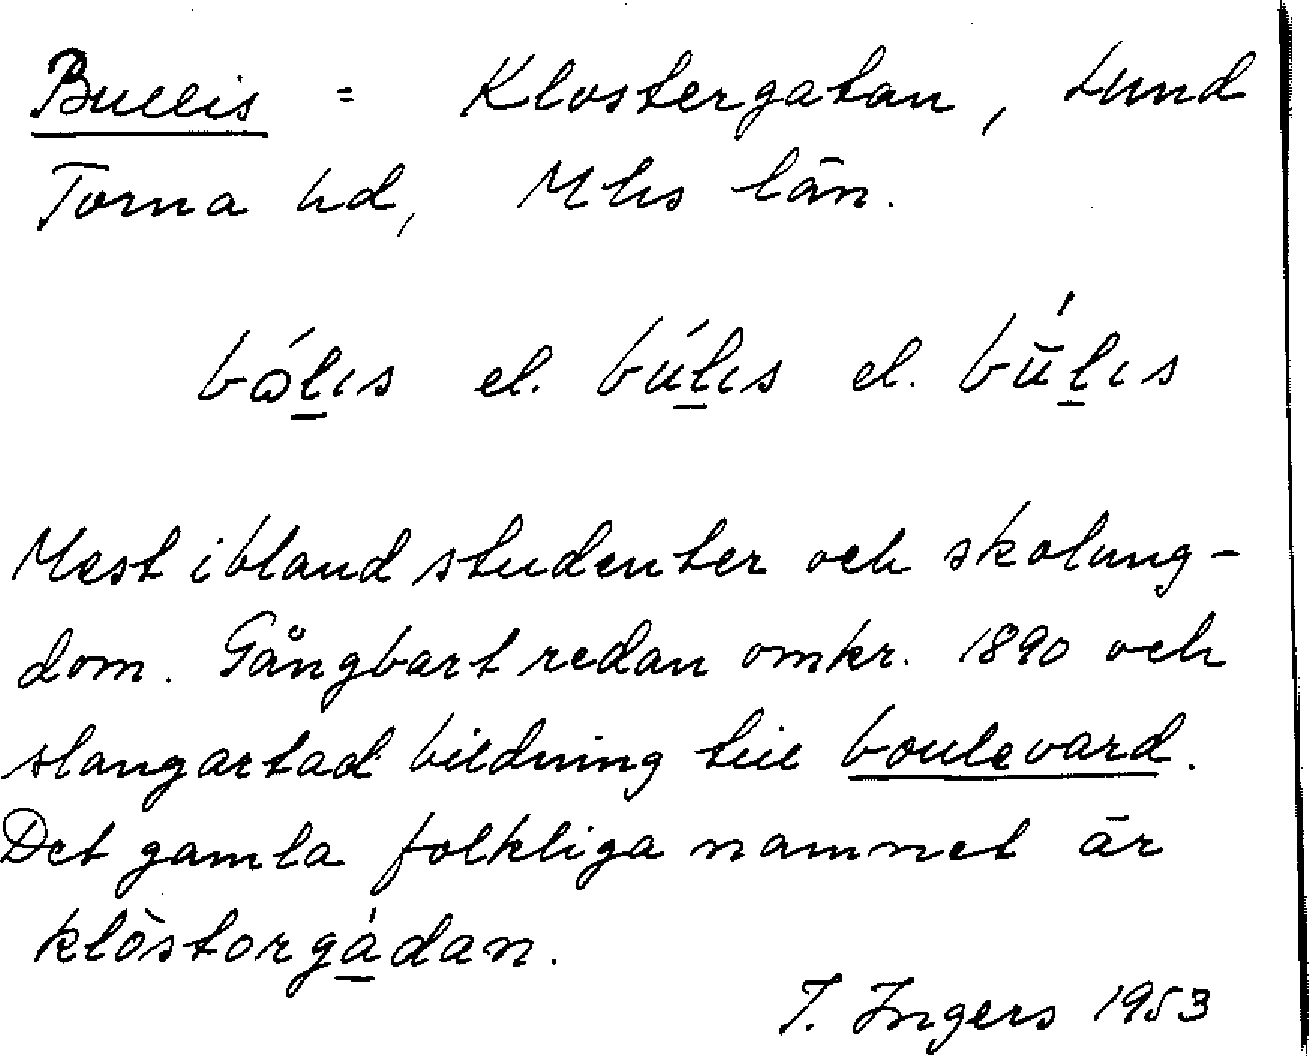 Bullis = Klostergatan, Lund
Torna hd, Mhs län.
bɷ́l̲ıs el. búl̲ıs el. bŭ́l̲ıs
Mest ibland studenter och skolung-
dom. Gångbart redan omkr. 1890 och
slangartad bildning till boulevard.
Det gamla folkliga namnet är
klòstorgá̲dan.
I. Ingers 1953